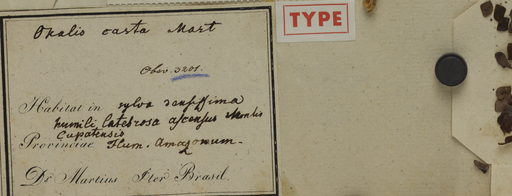 Oxalis casta Mart
TYPE
Obsv. 3201.
Habitat in sylva densissima
humili latebrosa ascensus Montis
Cupatensis
Provinciae Flum. Amazonum.
Dr Martius Iter Brasil.